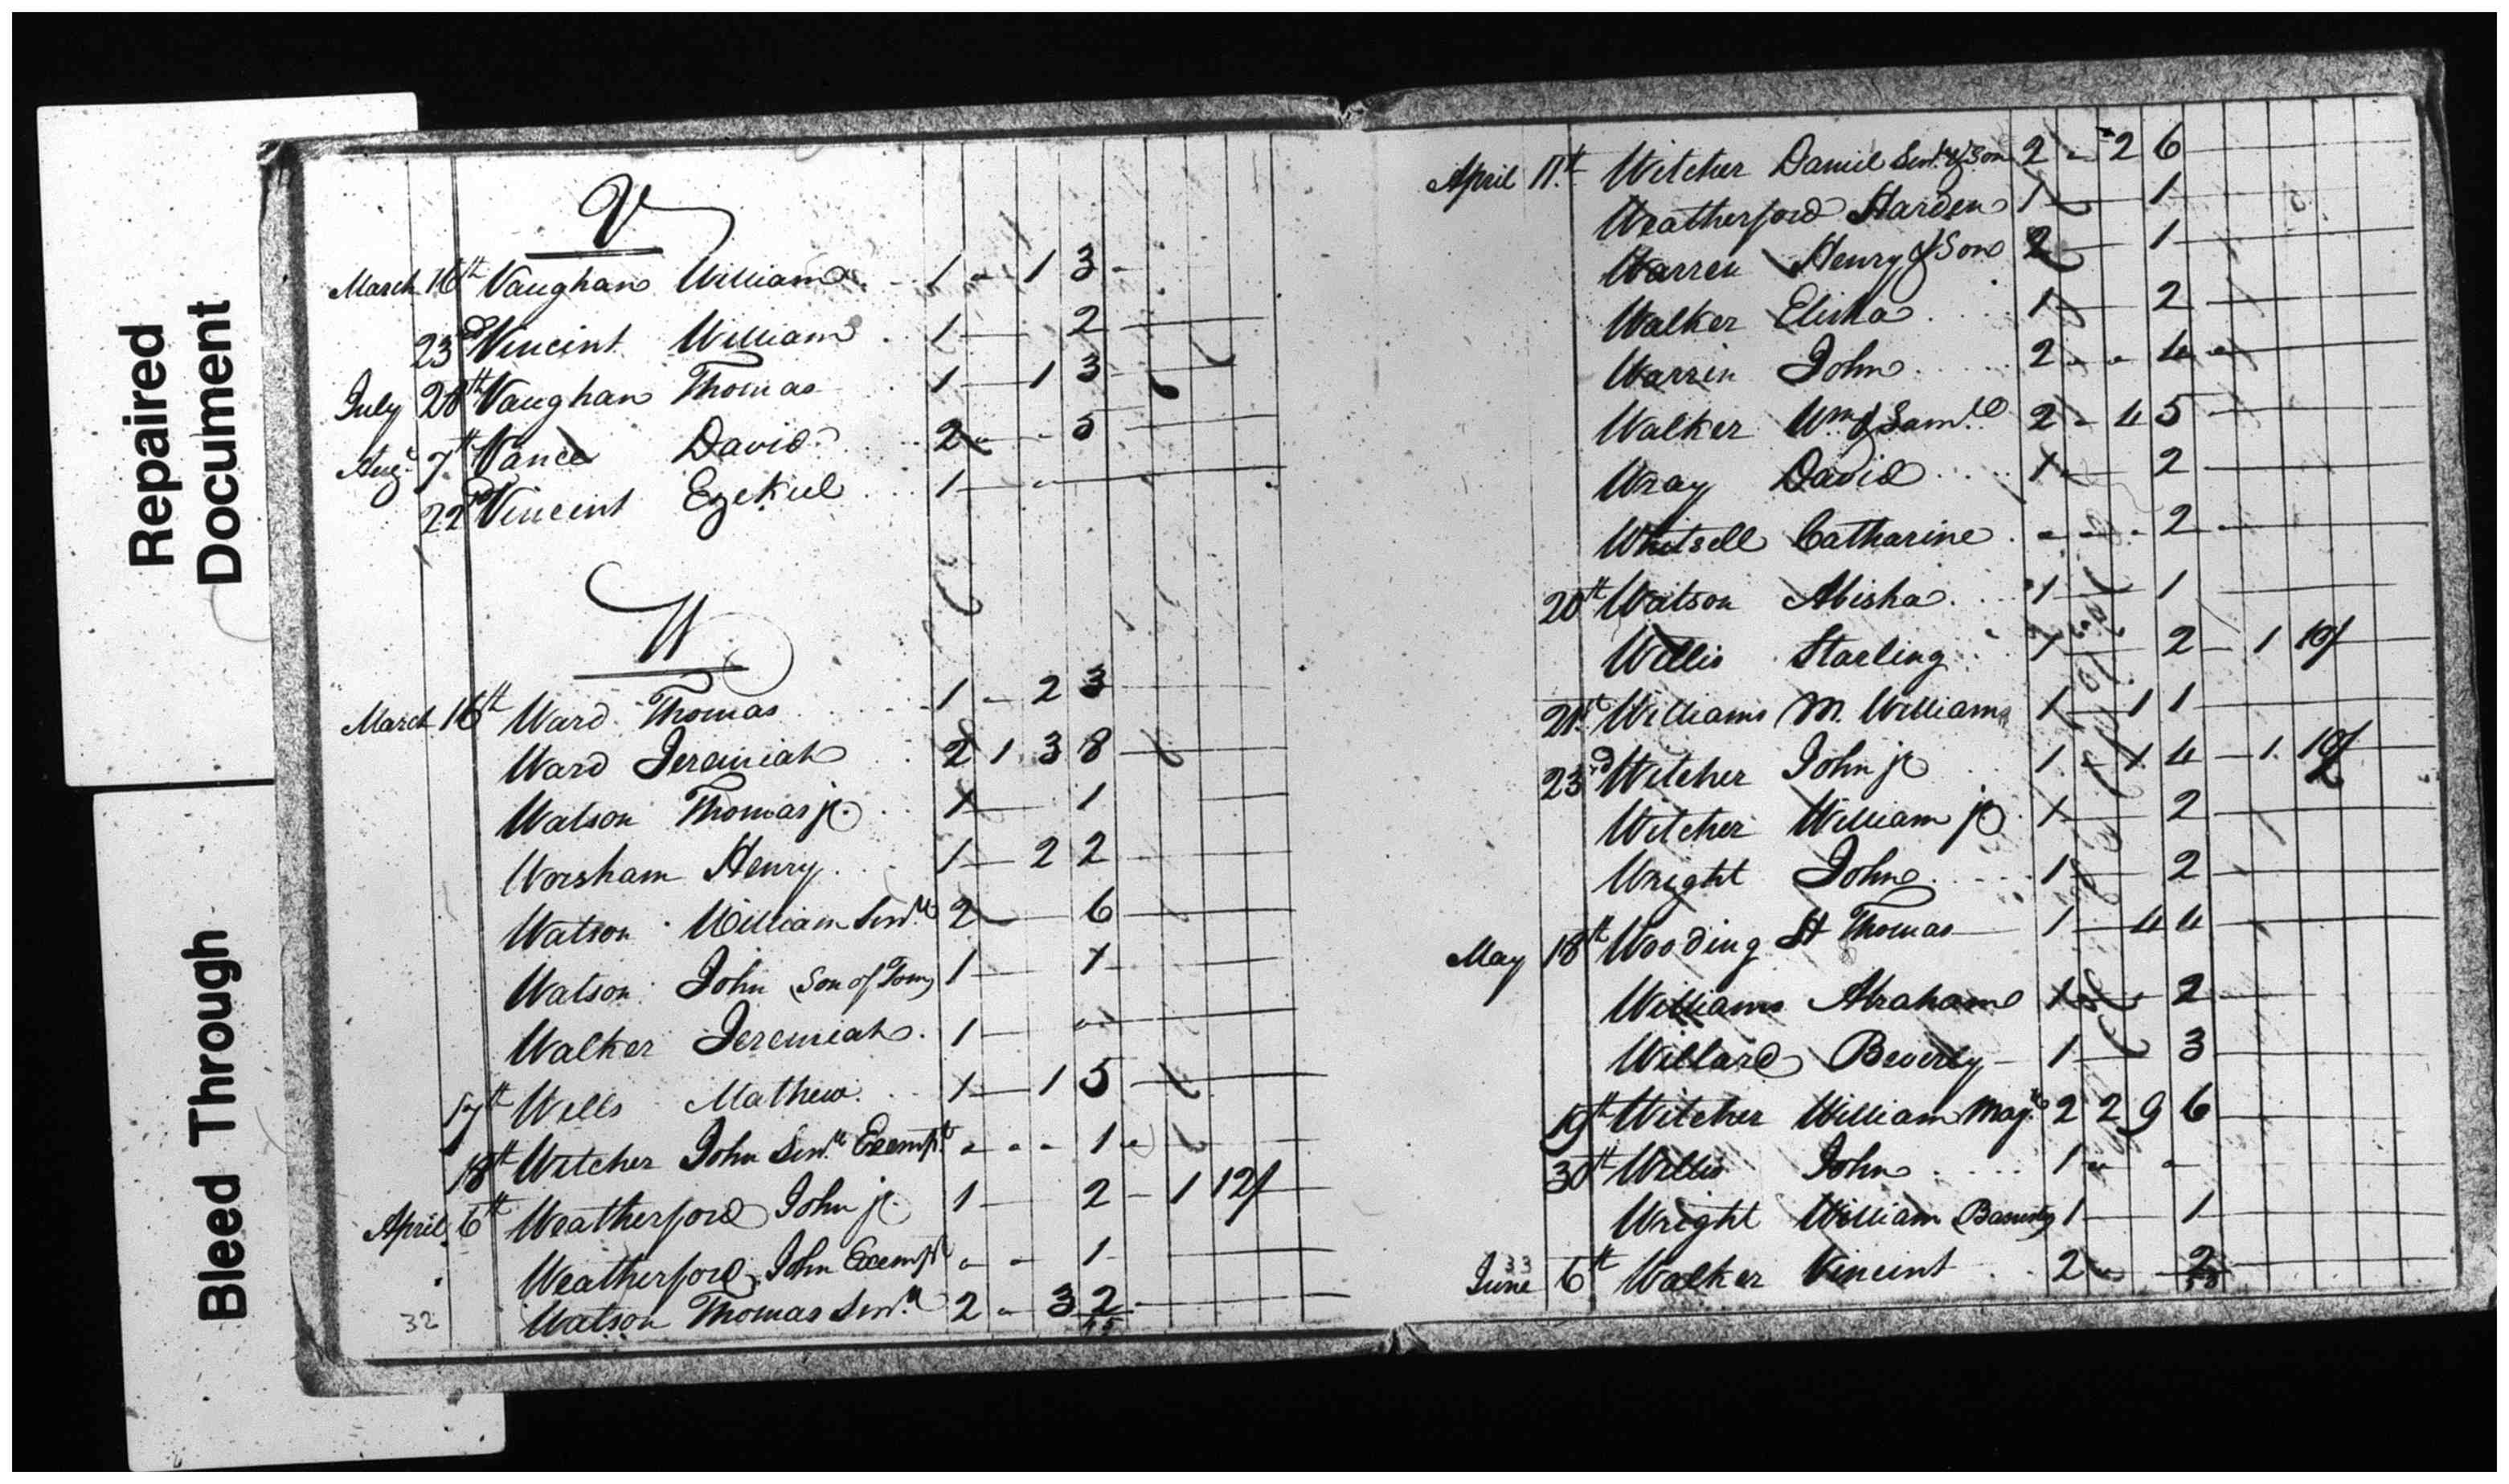 Repaired
Document
Bleed Through
V
March 16th Vaughan William 1 - 1 3 -
23d Vincint William 1 — 2
July 20th Vaughan Thomas 1 — 1 3
Augt 7th Vance David 2 - - 5
22d Vincent Ezekiel 1 — -
W
March 16th Ward Thomas 1 - 2 3
Ward Jeremiah 2 1 3 8
Watson Thomas jr. 1 — 1
Worsham Henry 1 — 2 2
Watson William Senr. 2 — 6
Watson John Son of Tom 1 — 1
Walker Jeremiah 1 — "
17th Wells Mathew 1 — 1 5
18th Witcher John Senr. Exempt. - - - 1 -
April 6th Weatherford John jr. 1 — 2 - 1 12/
Weatherford John Exempt - - 1
Watson Thomas Senr. 2 - 3 2
32 45
April 11th. Witcher Daniel Senr. & Son 2 - 2 6
Weatherford Harden 1 — 1
Warren Henry & Son 2 — 1
Walker Elisha 1 — 2
Warrin John 2 - - 4 -
Walker Wm & Saml. 2 - 4 5
Wray David 1 - 2
Whitsell Catharine - - - 2
20th Watson Abisha 1 — 1
Willis Starling 1 — 2 - 1 10/
21st Williams M. William 1 — 1 1
23d Witcher John jr 1 - 1 4 - 1 10/
Witcher William jr. 1 — 2
Wright John 1 — 2
May 18th Wooding St Thomas 1 — 4 4
Williams Abraham 1 - 2
Willard Beverly 1 — 3
19th Witcher William Majr. 2 2 9 6
30th Willis John 1 " "
Wright William 1 — 1
33
June 6th Walker Vincint 2 - 2